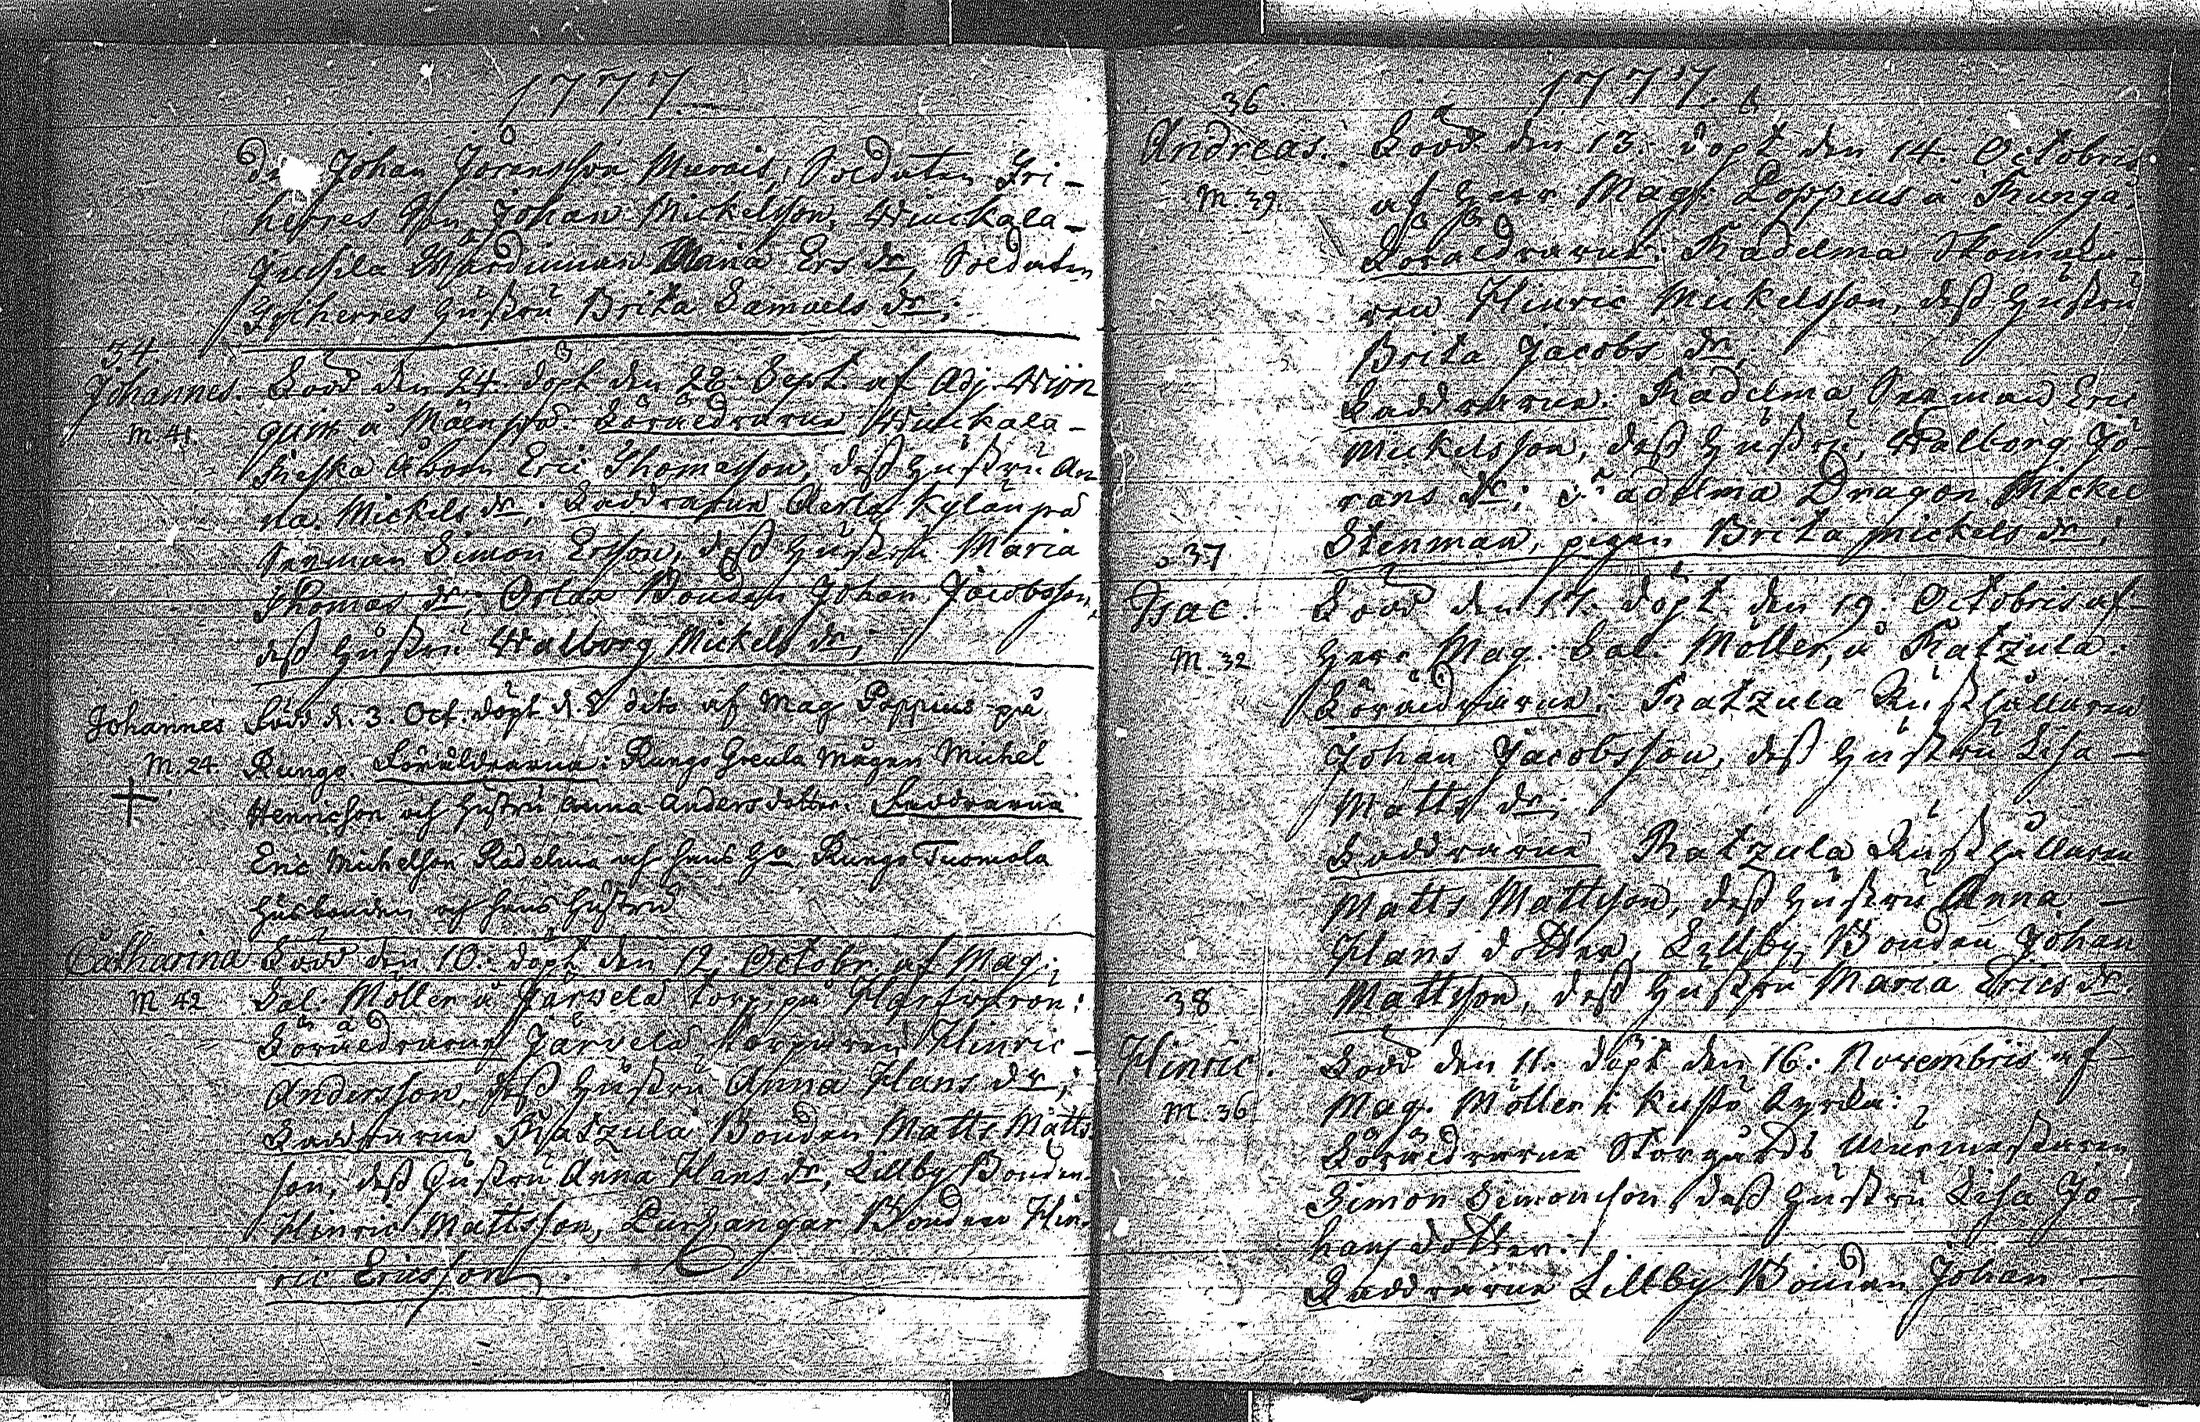 1777.
Johan Jöransson Murais, Soldaten Fri-
herres Johan Mickelsson, Wuickala
Maria Ers dr, Soldaten
hustru Brita Samuels dr;
34.
Johannes. Född den 24. döpt den 28. Sept. af Adj. Wijn
M. 41. quist å Mäenpä. Föräldrarne Wuickala-
Eric Thomasson, dess hustru An
na Mickels dr; Faddrarne Aerla Kylänpä
Simon Ersson, dess hustru Maria
Thomas dr; Orlax Bonden Johan Jacobsson,
dess hustru Walborg Mickels dr;
Johannes Född d. 3. Oct. döpt d. 8 dito af Mag Poppius på
M. 24. Rungo. Föräldrarna: Rungo Greula Mågen Michel
Henricson och hustru Anna Anders dotter. Faddrarna
Eric Michelson Radelma och hans Ho Rungo Tuomola
husbonden och hans hustru
Catharina Född den 10: döpt den 12. Octobr. af Mag:
M 42 Sal. Möller å Järvelä torp på Harfvaron:
Föräldrarne Järvelä Torparen Hinric
Andersson, dess hustru Anna Hans dr;
Faddrarne Ratzula Bonden Matts Matts
son, dess hustru Anna Hans dr, Lillby Bonden
Hinric Mattsson, Bonden Hin-
ric Ericsson.
1777.
36
Andreas. Född den 13. döpt den 14. Octobris
M. 39. af Herr Mag: Poppius å Runga
Föräldrarne: Radelma Skomaka-
ren Hinric Mickelsson, dess hustru
Brita Jacobs dr,
Faddrarne: Radelma Eric
Mickelsson, dess hustru, Walborg Jö-
rans dr; Radelma Dragon Mickel
Stenman, pigan Brita Mickels dr;
37
Isac. Född den 17. döpt den 19. Octobris af
M. 32 Herr Mag. Sal. Möller, å Ratzula.
Föräldrarne: Ratzula Rusthållaren
Johan Jacobsson, dess hustru Lisa
Matts dr;
Faddrarne Ratzula Rusthållaren
Matts Mattsson, dess hustru Anna
Hans dotter, Lillby Bonden Johan
Mattsson, dess hustru Maria Erics dr.
38
Hinric. Född den 11. döpt den 16: Novembris af
M. 36 Mag. Möller i Kustö Kyrka:
Föräldrarne Storgårds Murmestaren
Simon Simonson, dess hustru Lisa Jo-
hans dotter:
Faddrarne Lillby Bonden Johan